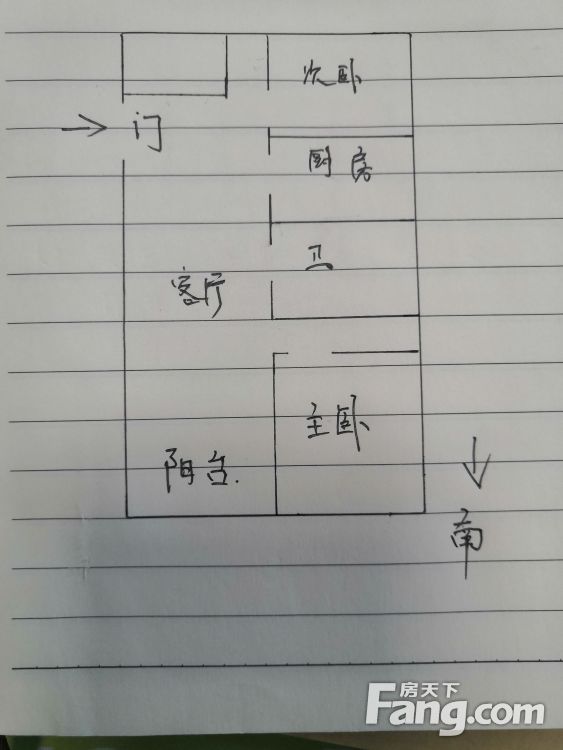 次卧
门
厨房
卫
客厅
主卧
阳台.
南
房天下
Fang.com